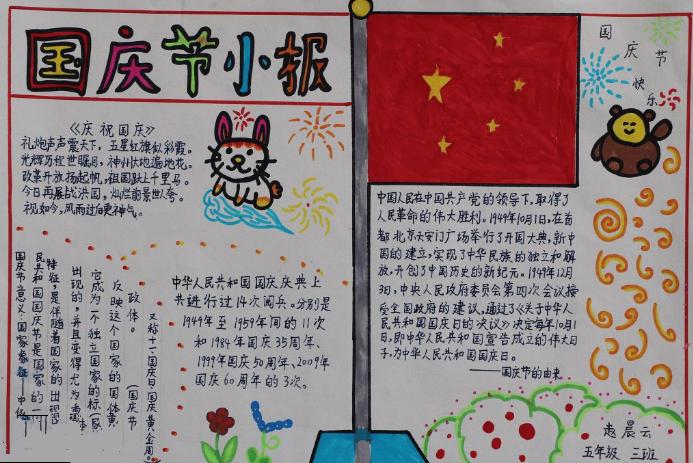 国庆节小报
《庆祝国庆》
礼炮声声震天下，五星红旗似彩霞。
光辉历程世瞩目，神州大地遍地花。
改革开放扬起帆，祖国跃上千里马。
今日再展战洪国，灿烂前景世人夸。
视如今，风雨过后更神气。
国庆节意义：国家象征——中华
民共和国国庆节是国家的一
特征，是伴随着国家的出现
出现的，并且变得尤为重
它成为一个独立国家的标
反映这个国家的国体
政体。
（国庆节
又称十一、国庆日、国庆黄金周。）
中华人民共和国国庆庆典上
共进行过14次阅兵。分别是
1949年至1959年间的11次
和1984年国庆35周年、
1999年国庆50周年、2009年
国庆60周年的3次。
国庆节
快乐
中国人民在中国共产党的领导下，取得了
人民革命的伟大胜利。1949年10月1日，在首
都北京天安门广场举行了开国大典，新中
国的建立，实现了中华民族的独立和解
放，开创了中国历史的新纪元。1949年12月
3日，中央人民政府委员会第四次会议接
受全国政府的建议，通过了《关于中华人
民共和国国庆日的决议》决定每年10月1
日，即中华人民共和国宣告成立的伟大日
子，为中华人民共和国国庆日。
——国庆节的由来
赵晨云
五年级 三班